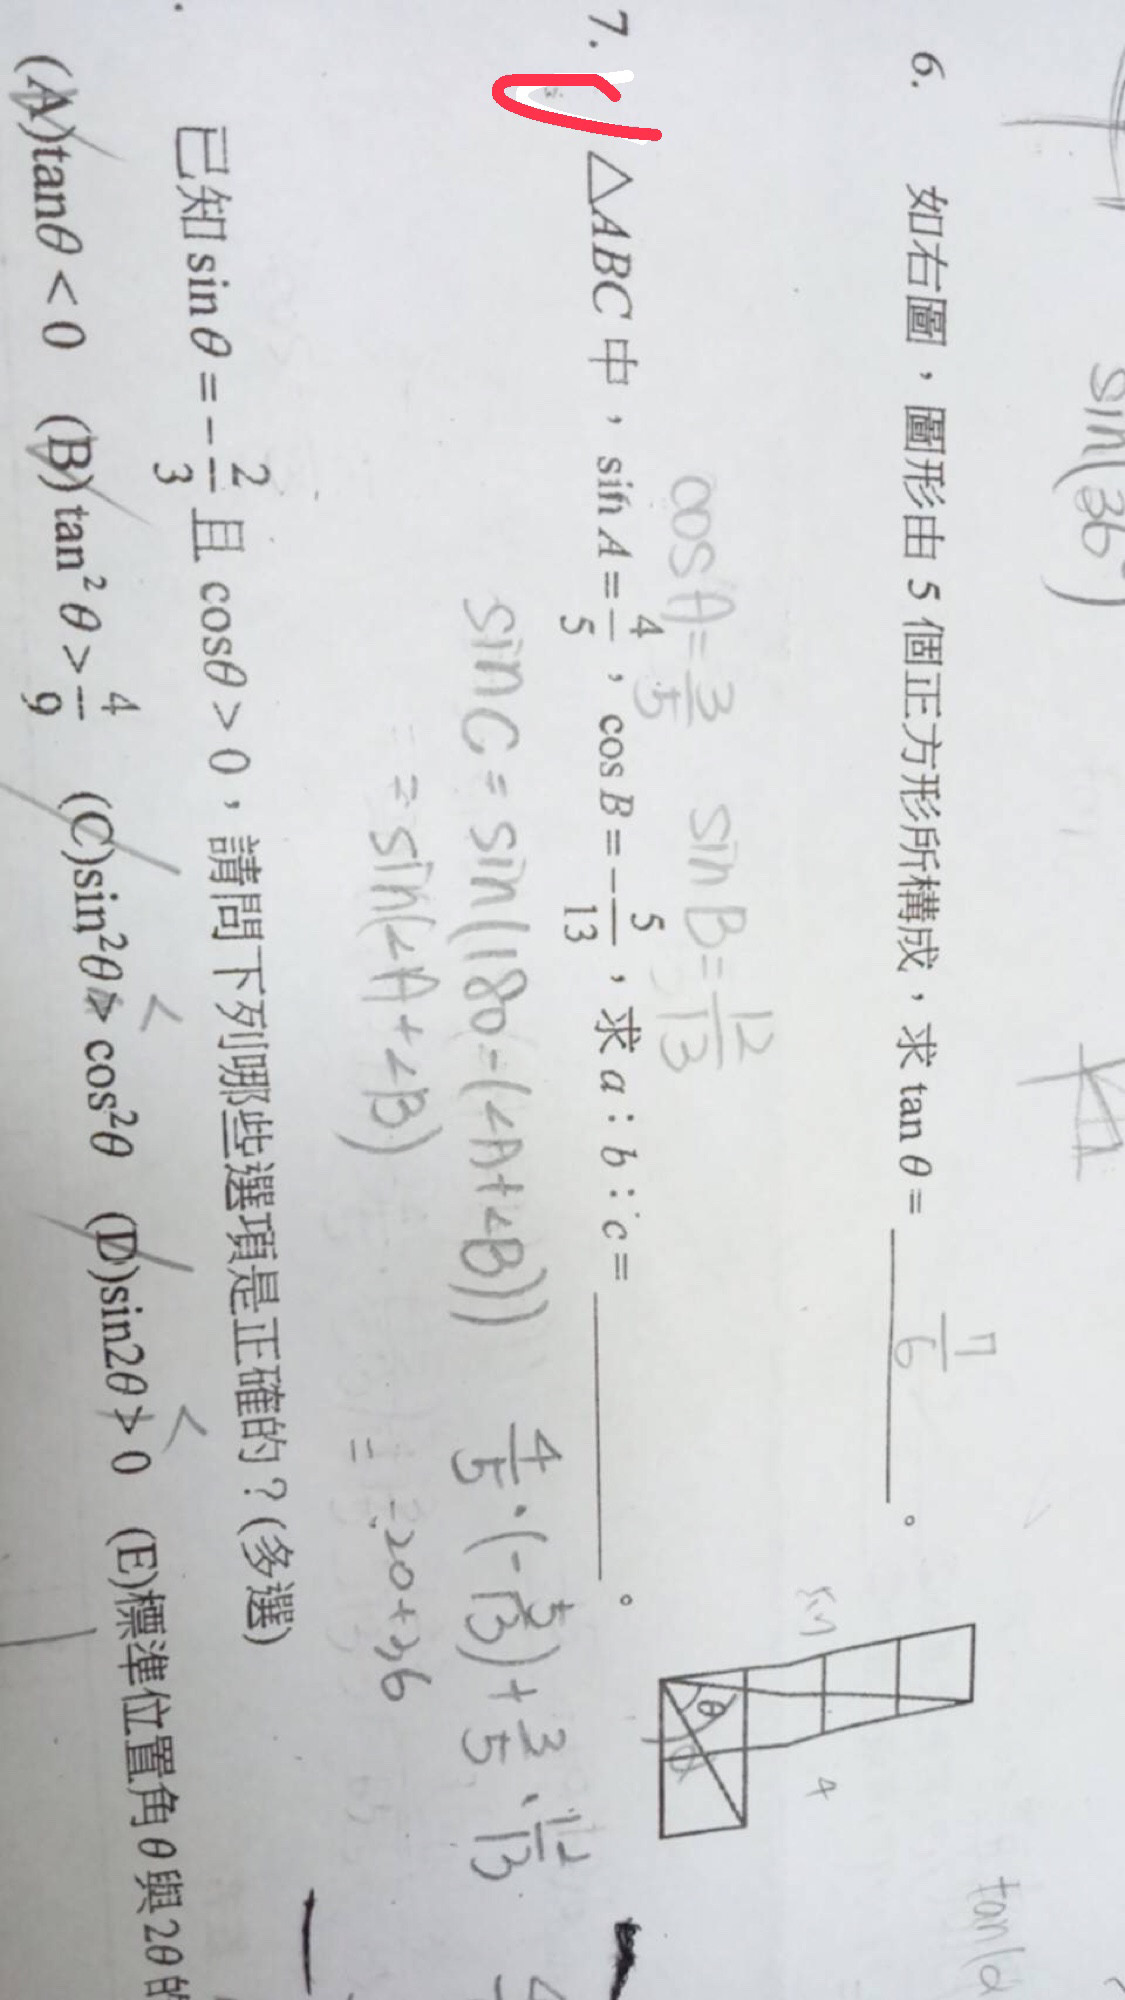 sin(36°)
6. 如右圖，圖形由 5 個正方形所構成，求 tan θ = 7/6 。
sin
θ
α
4
tan(α
cos A = 3/5 sin B = 12/13
7. △ABC 中，sin A = 4/5，cos B = -5/13，求 a : b : c = 。
sin C = sin(180-(∠A+∠B)) 4/5·(-5/13)+3/5·12/13
= sin(∠A+∠B) = -20+36
已知 sin θ = -2/3 且 cosθ > 0，請問下列哪些選項是正確的？(多選)
< <
(A)tanθ < 0 (B)tan²θ > 4/9 (C)sin²θ > cos²θ (D)sin2θ > 0 (E)標準位置角 θ 與 2θ 的